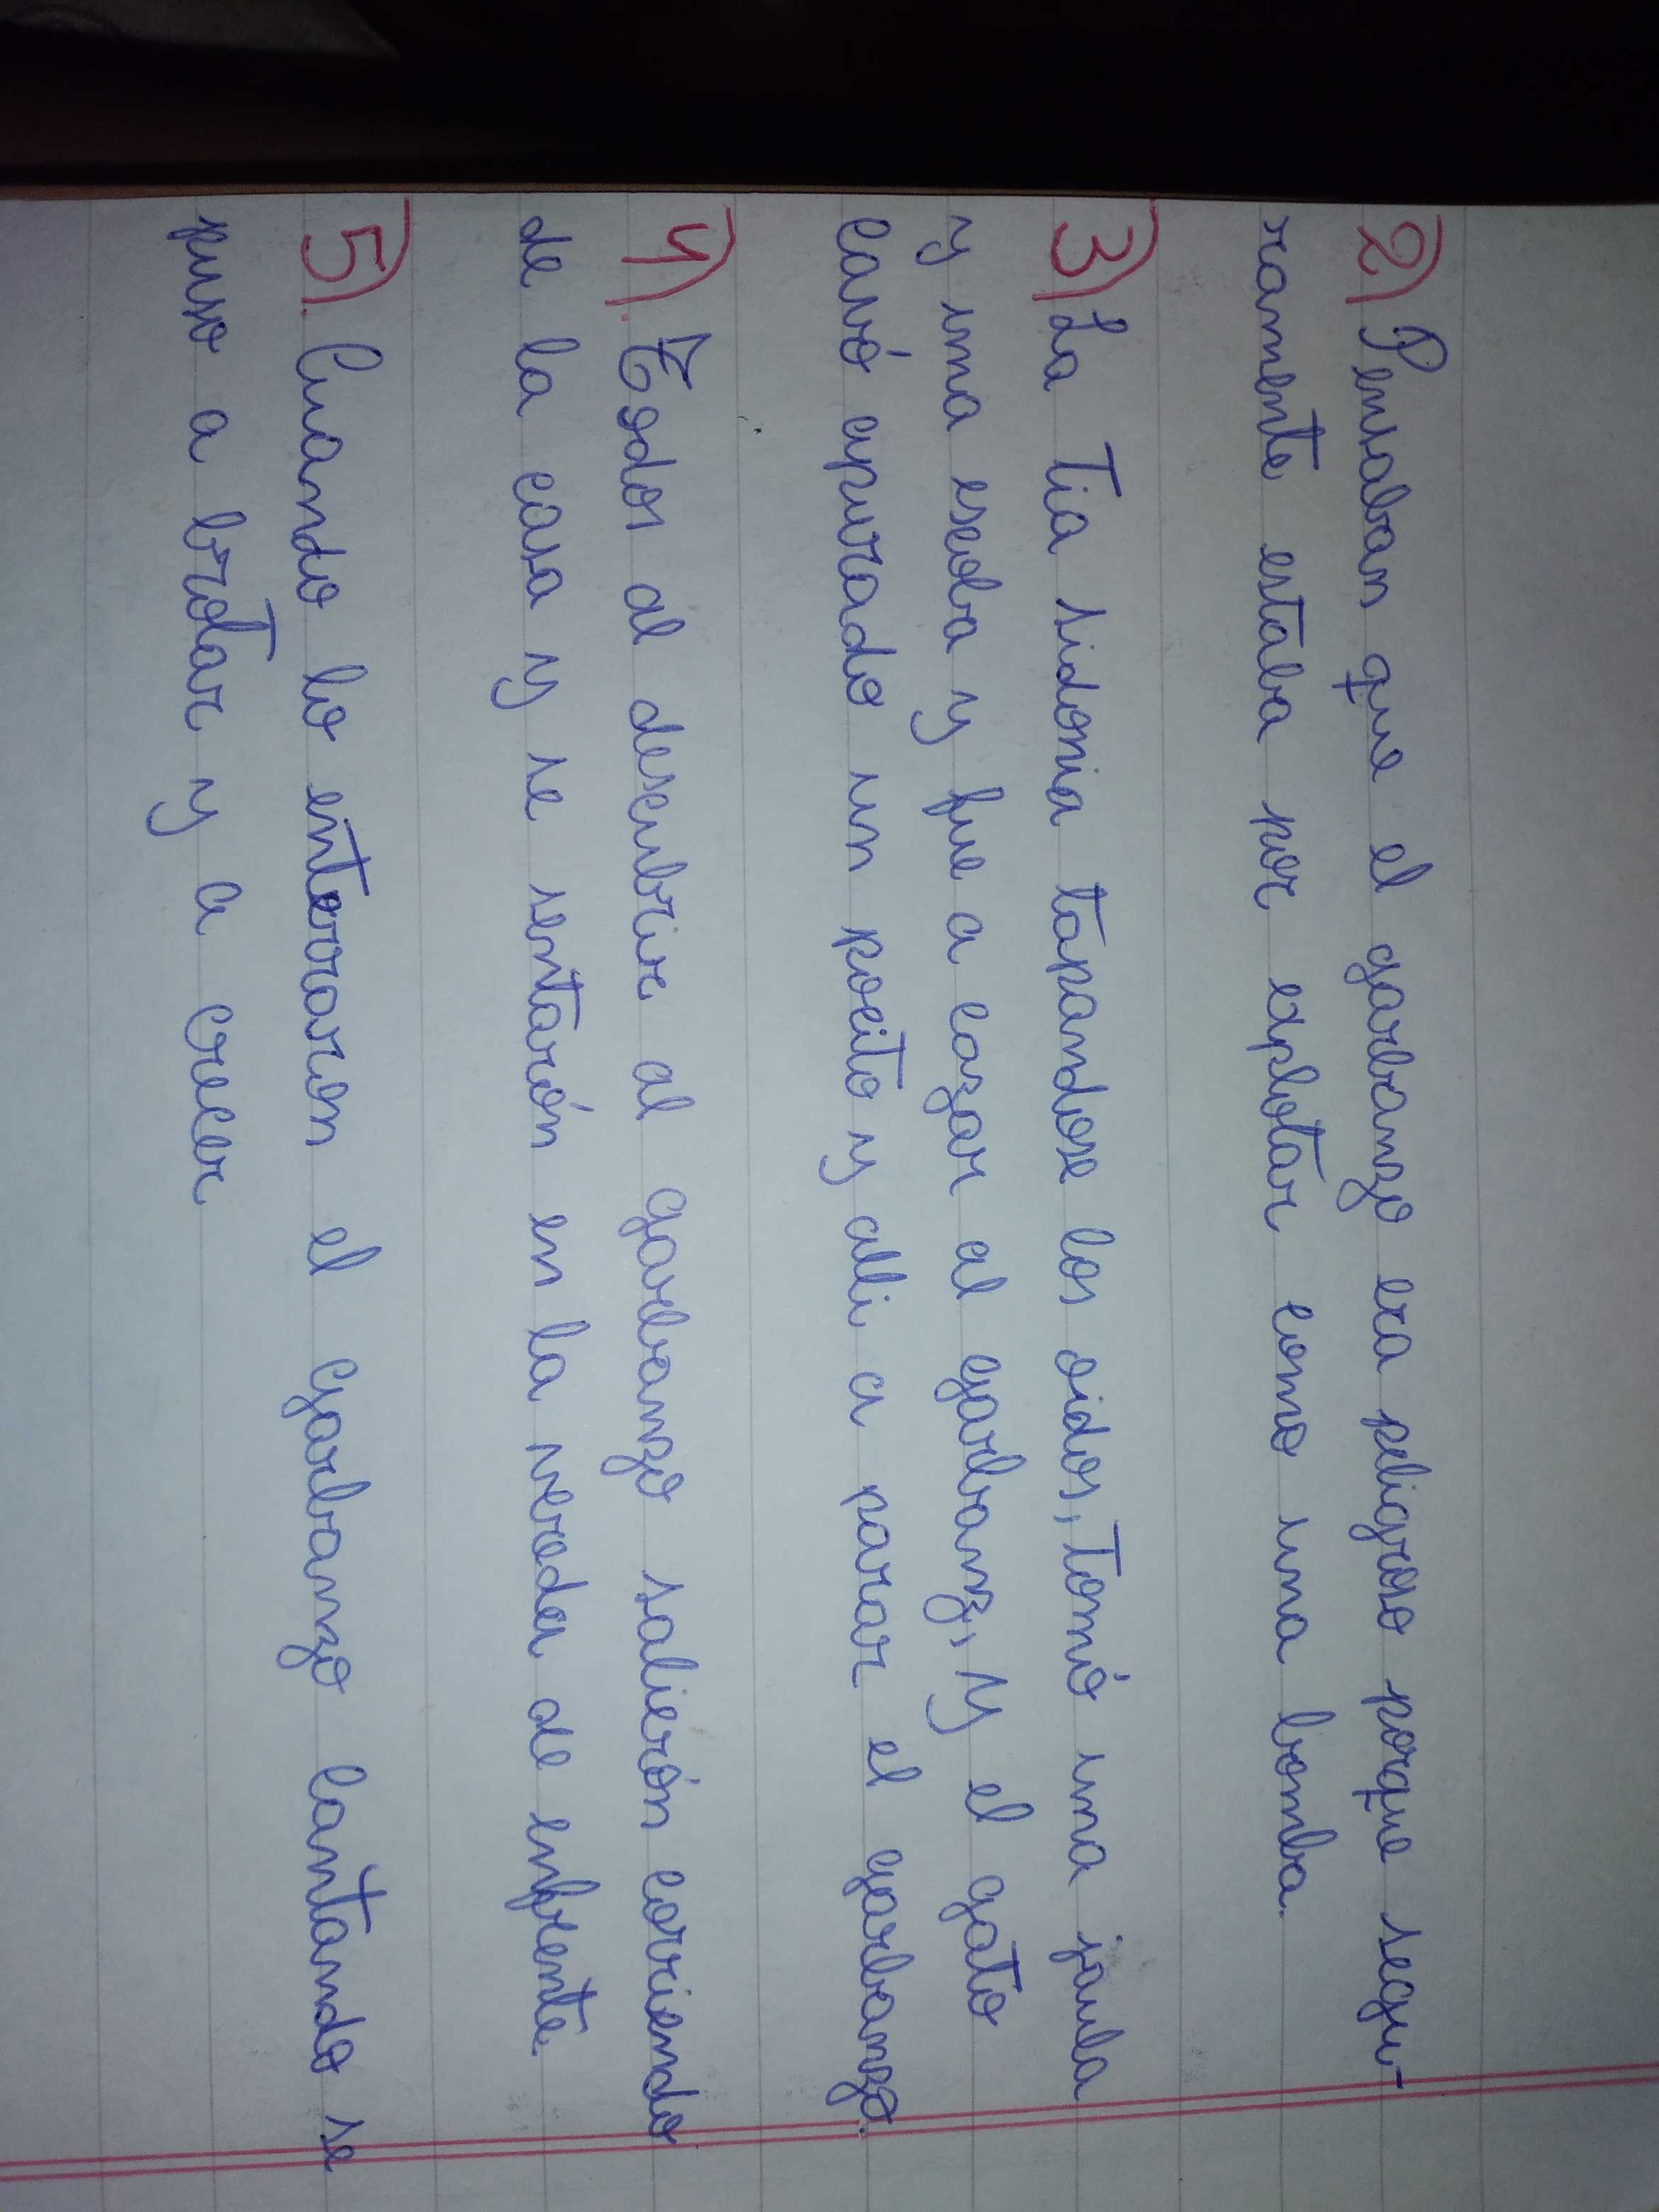 2) Pensaban que el garbanzo era peligroso porque segu-
ramente estaba por explotar como una bomba.
3) La Tia sidonia tapandose los oidos, Tomó una jaula
y una escoba y fue a cazar al garbanz, y el gato
cavó apurado un pocito y alli a parar el garbanzo.
4) Todos al descubrir al garbanzo salierón corriendo
de la casa y se sentarón en la vereda de enfrente.
5) Cuando lo enterraron el garbanzo cantando se
puso a brotar y a crecer